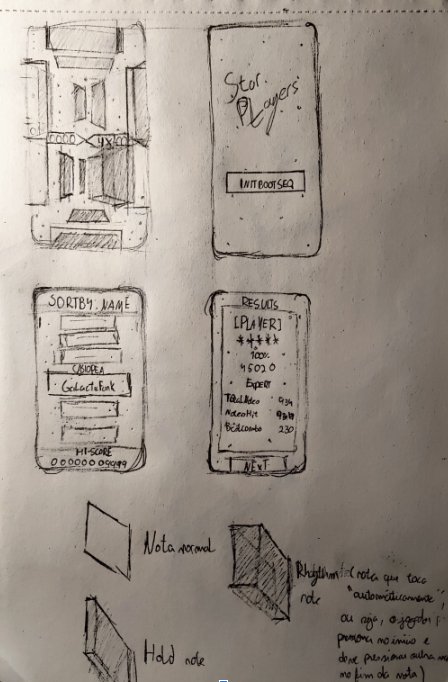 4X
Star
PLayers
INITBOOTSEQ
SORTBY. NAME
CASIOPEA
GalacticFunk
HI-SCORE
RESULTS
[PLAYER]
*****
100%
45020
EXPERT
Total Notes 934
Notes Hit
Best Combo 230
NEXT
Nota normal
Hold note
Rhythm (nota que toca
note "automáticamente"
ou seja, o jogador
pressiona no início e
deve pressionar outra
no fim da nota)